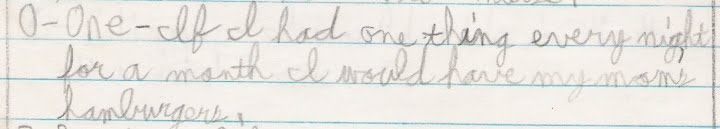 O-One-If I had one thing every night
for a month I would have my mom's
hamburgers.